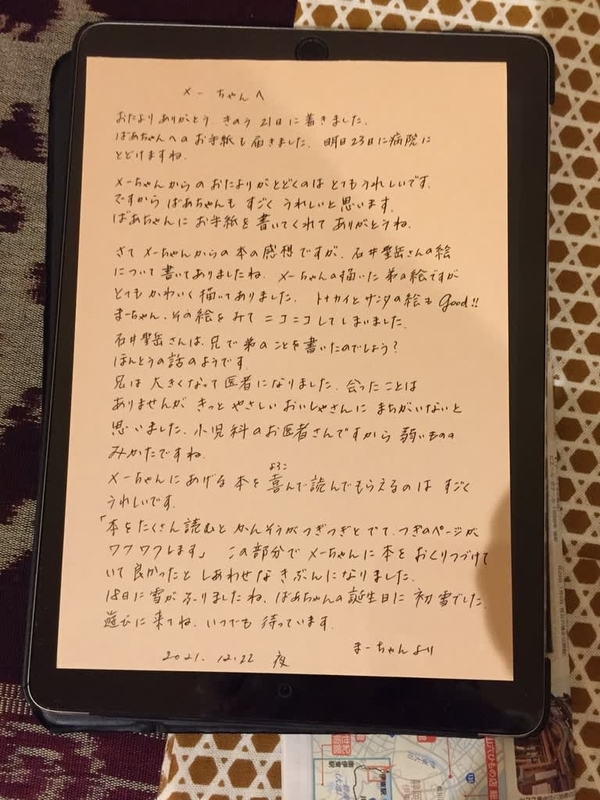 メーちゃんへ
おたよりありがとう きのう 21日に書きました。
ばあちゃんへのお手紙も届きました。明日23日に病院に
とどけますね。
メーちゃんからのおたよりがとどくのは とてもうれしいです。
ですから ばあちゃんも すごく うれしいと思います。
ばあちゃんに お手紙を書いてくれて ありがとうね。
さて メーちゃんからの本の感想ですが、石井聖岳さんの絵
について書いてありましたね。メーちゃんの描いた弟の絵ですが
とてもかわいく描いてありました。トナカイとサンタの絵も Good!!
まーちゃん、その絵をみて ニコニコしてしまいました。
石井聖岳さんは、兄で弟のことを書いたのでしょう?
ほんとうの話のようです。
兄は 大きくなって医者になりました。会ったことは
ありませんが きっと やさしい おいしゃさんに まちがいないと
思いました。小児科のお医者さんですから 弱いものの
みかたですね。
メーちゃんにあげる本を 喜んで読んでもらえるのは すごく
よろこ
うれしいです。
「本をたくさん読むと かんそうがつぎつぎとでて、つぎのページが
ワクワクします」 この部分で メーちゃんに 本を おくりつづけて
いて良かったと しあわせな きぶんになりました。
18日に雪がふりましたね、ばあちゃんの誕生日に 初雪でした。
遊びに来てね。いつでも 待っています。
まーちゃんより
2021.12.22 夜